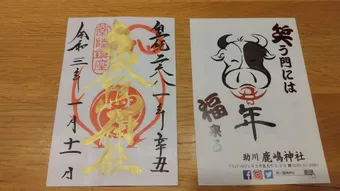 皇紀二六八一年辛丑
鹿嶋神社
令和三年一月十一日
笑う門には
福来る
年
助川 鹿嶋神社